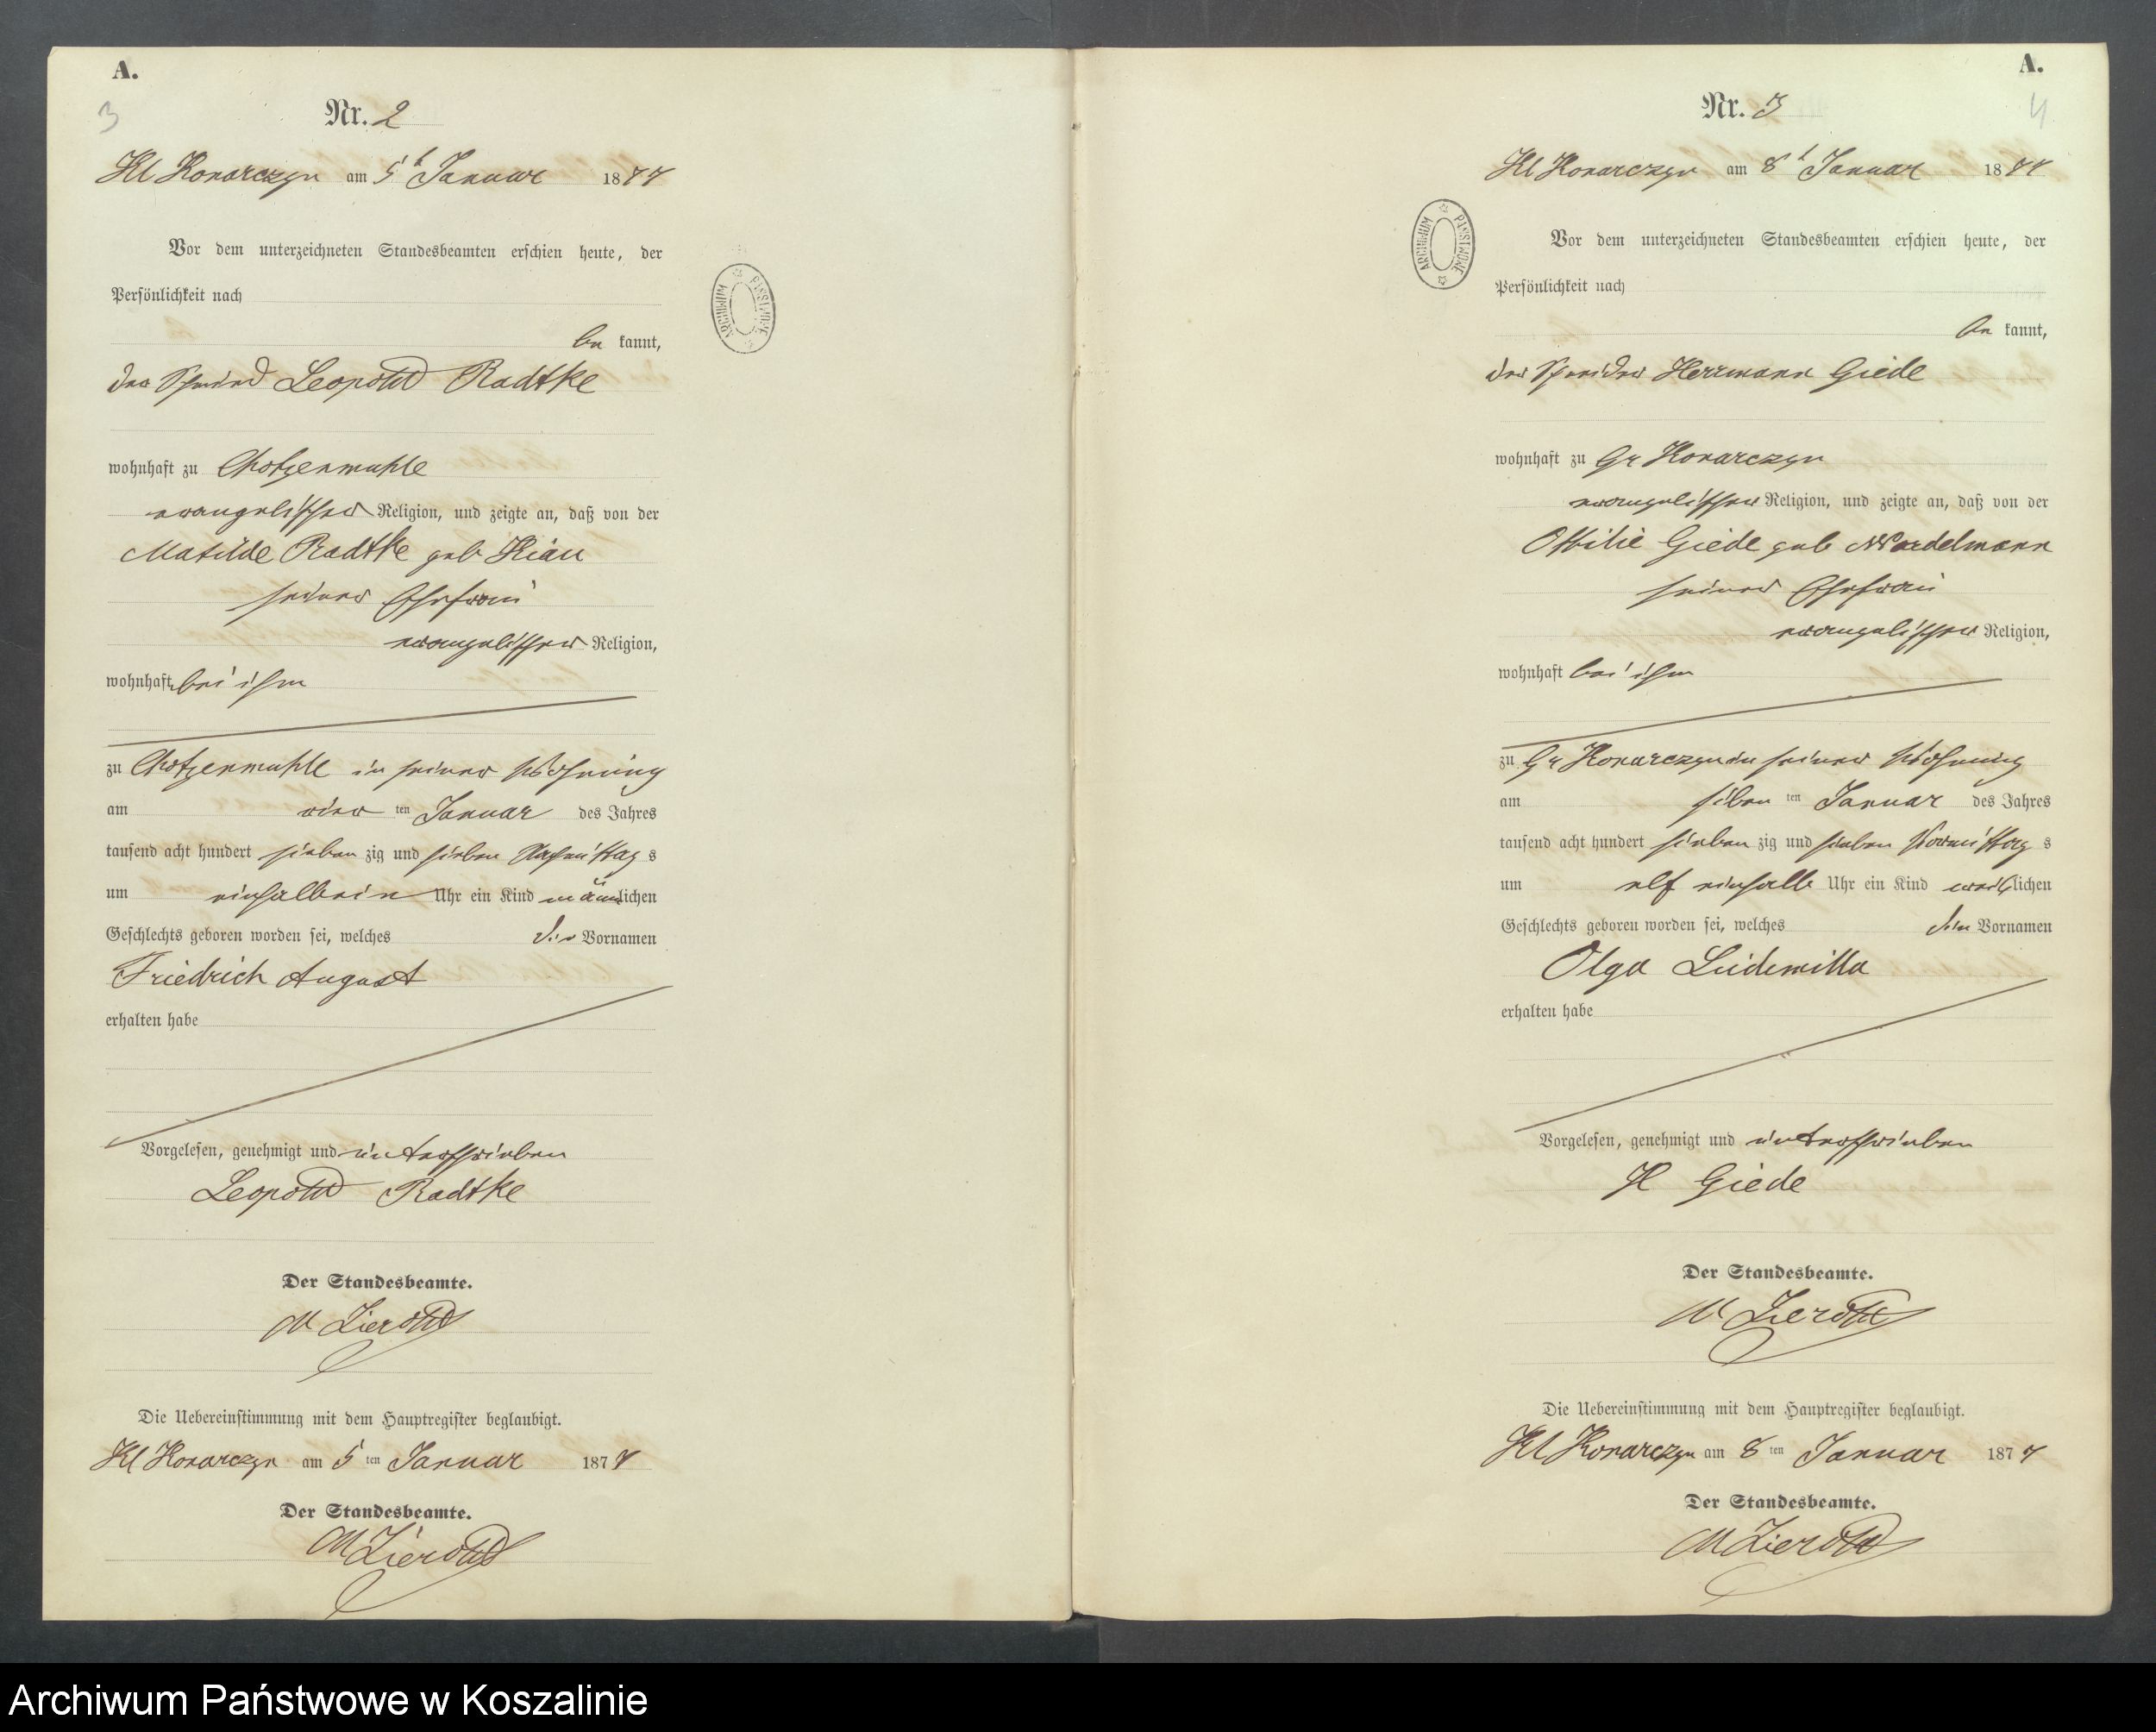 A.
3
Nr. 2
Kl Konarczyn am 5t Januar 1877
Vor dem unterzeichneten Standesbeamten erschien heute, der
Persönlichkeit nach
be kannt,
der Schmied Leopold Radtke
wohnhaft zu Chotzenmühle
evangelischer Religion, und zeigte an, daß von der
Matilde Radtke geb Kiau
seiner Ehefrau
evangelischer Religion,
wohnhaft bei ihm
zu Chotzenmühle in seiner Wohnung
am vier ten Januar des Jahres
tausend acht hundert sieben zig und sieben Nachmittag s
um einhalbein Uhr ein Kind männlichen
Geschlechts geboren worden sei, welches die Vornamen
Friedrich August
erhalten habe
Vorgelesen, genehmigt und unterschrieben
Leopold Radtke
Der Standesbeamte.
M Zierold
Die Uebereinstimmung mit dem Hauptregister beglaubigt.
Kl Konarczyn am 5 ten Januar 1877
Der Standesbeamte.
M Zierold
ARCHIWUM PAŃSTWOWE
A.
4
Nr. 3
Kl Konarczyn am 8t Januar 1877
Vor dem unterzeichneten Standesbeamten erschien heute, der
Persönlichkeit nach
be kannt,
der Schneider Herrmann Giede
wohnhaft zu Gr Konarczyn
evangelischer Religion, und zeigte an, daß von der
Ottilie Giede geb Nardelmann
seiner Ehefrau
evangelischer Religion,
wohnhaft bei ihm
zu Gr Konarczyn in seiner Wohnung
am siben ten Januar des Jahres
tausend acht hundert sieben zig und sieben Vormittag s
um elf einhalb Uhr ein Kind weiblichen
Geschlechts geboren worden sei, welches die Vornamen
Olga Ludemilla
erhalten habe
Vorgelesen, genehmigt und unterschrieben
H Giede
Der Standesbeamte.
M Zierold
Die Uebereinstimmung mit dem Hauptregister beglaubigt.
Kl Konarczyn am 8 ten Januar 1877
Der Standesbeamte.
M Zierold
ARCHIWUM PAŃSTWOWE
Archiwum Państwowe w Koszalinie